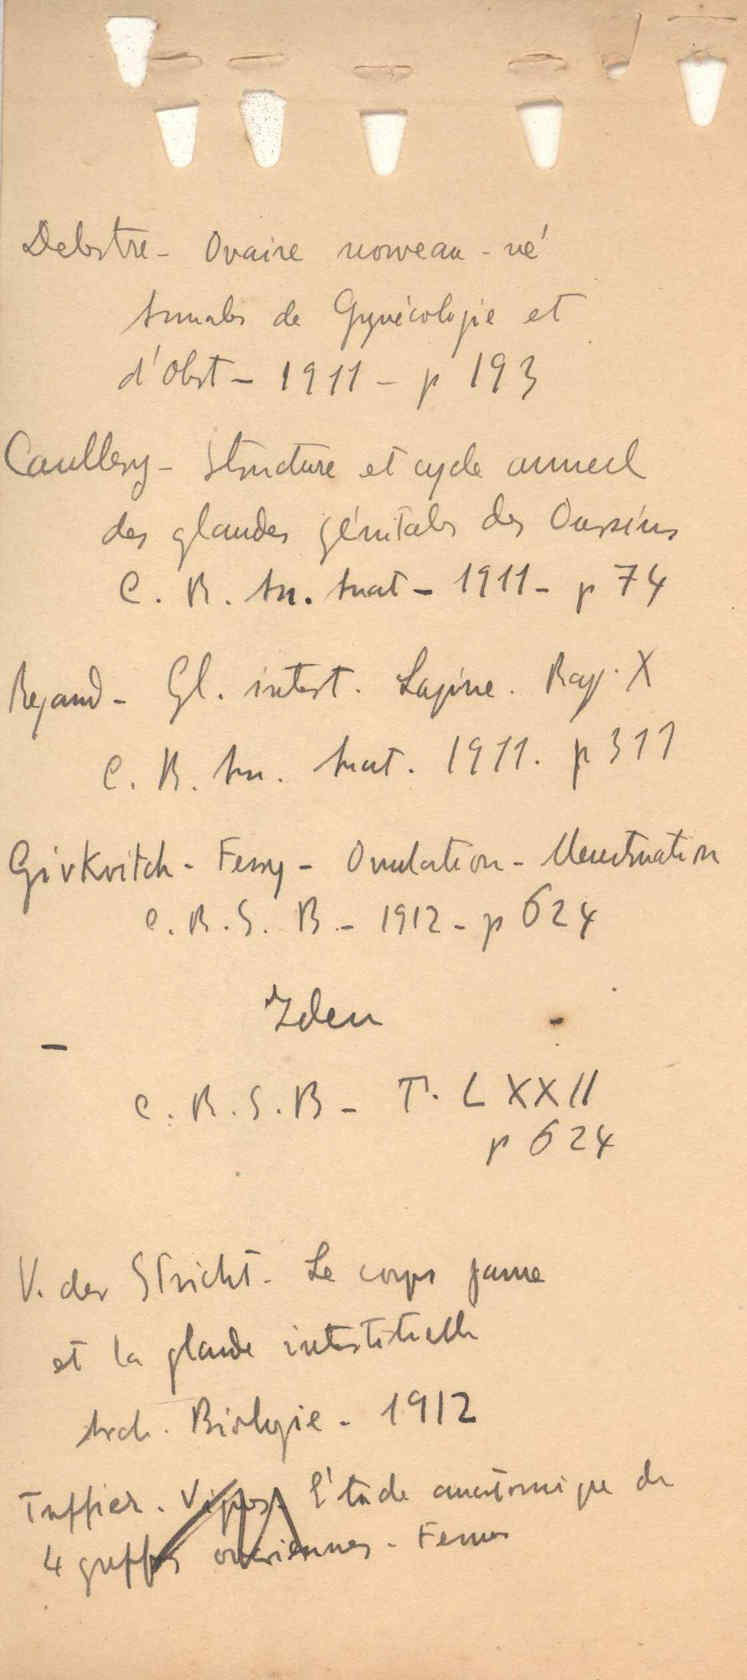 Delestre - Ovaire nouveau-né
Annales de Gynécologie et
d'Obst - 1911 - p 193
Caullery - Structure et cycle annuel
des glandes génitales des Oursins
C. R. An. Anat - 1911 - p 74
Regaud - Gl. interst. Lapine. Ray. X
C. R. An. Anat. 1911. p 311
Givkvitch - Ferry - Ovulation - Menstruation
C. R. S. B - 1912 - p 624
Iden
C. R. S. B - T. LXXII
p 624
V. der Stricht - Le corps jaune
et la glande interstitielle
Arch. Biologie - 1912
Tuffier. Vignes. L'étude anatomique de
4 greffes ovariennes - Femmes